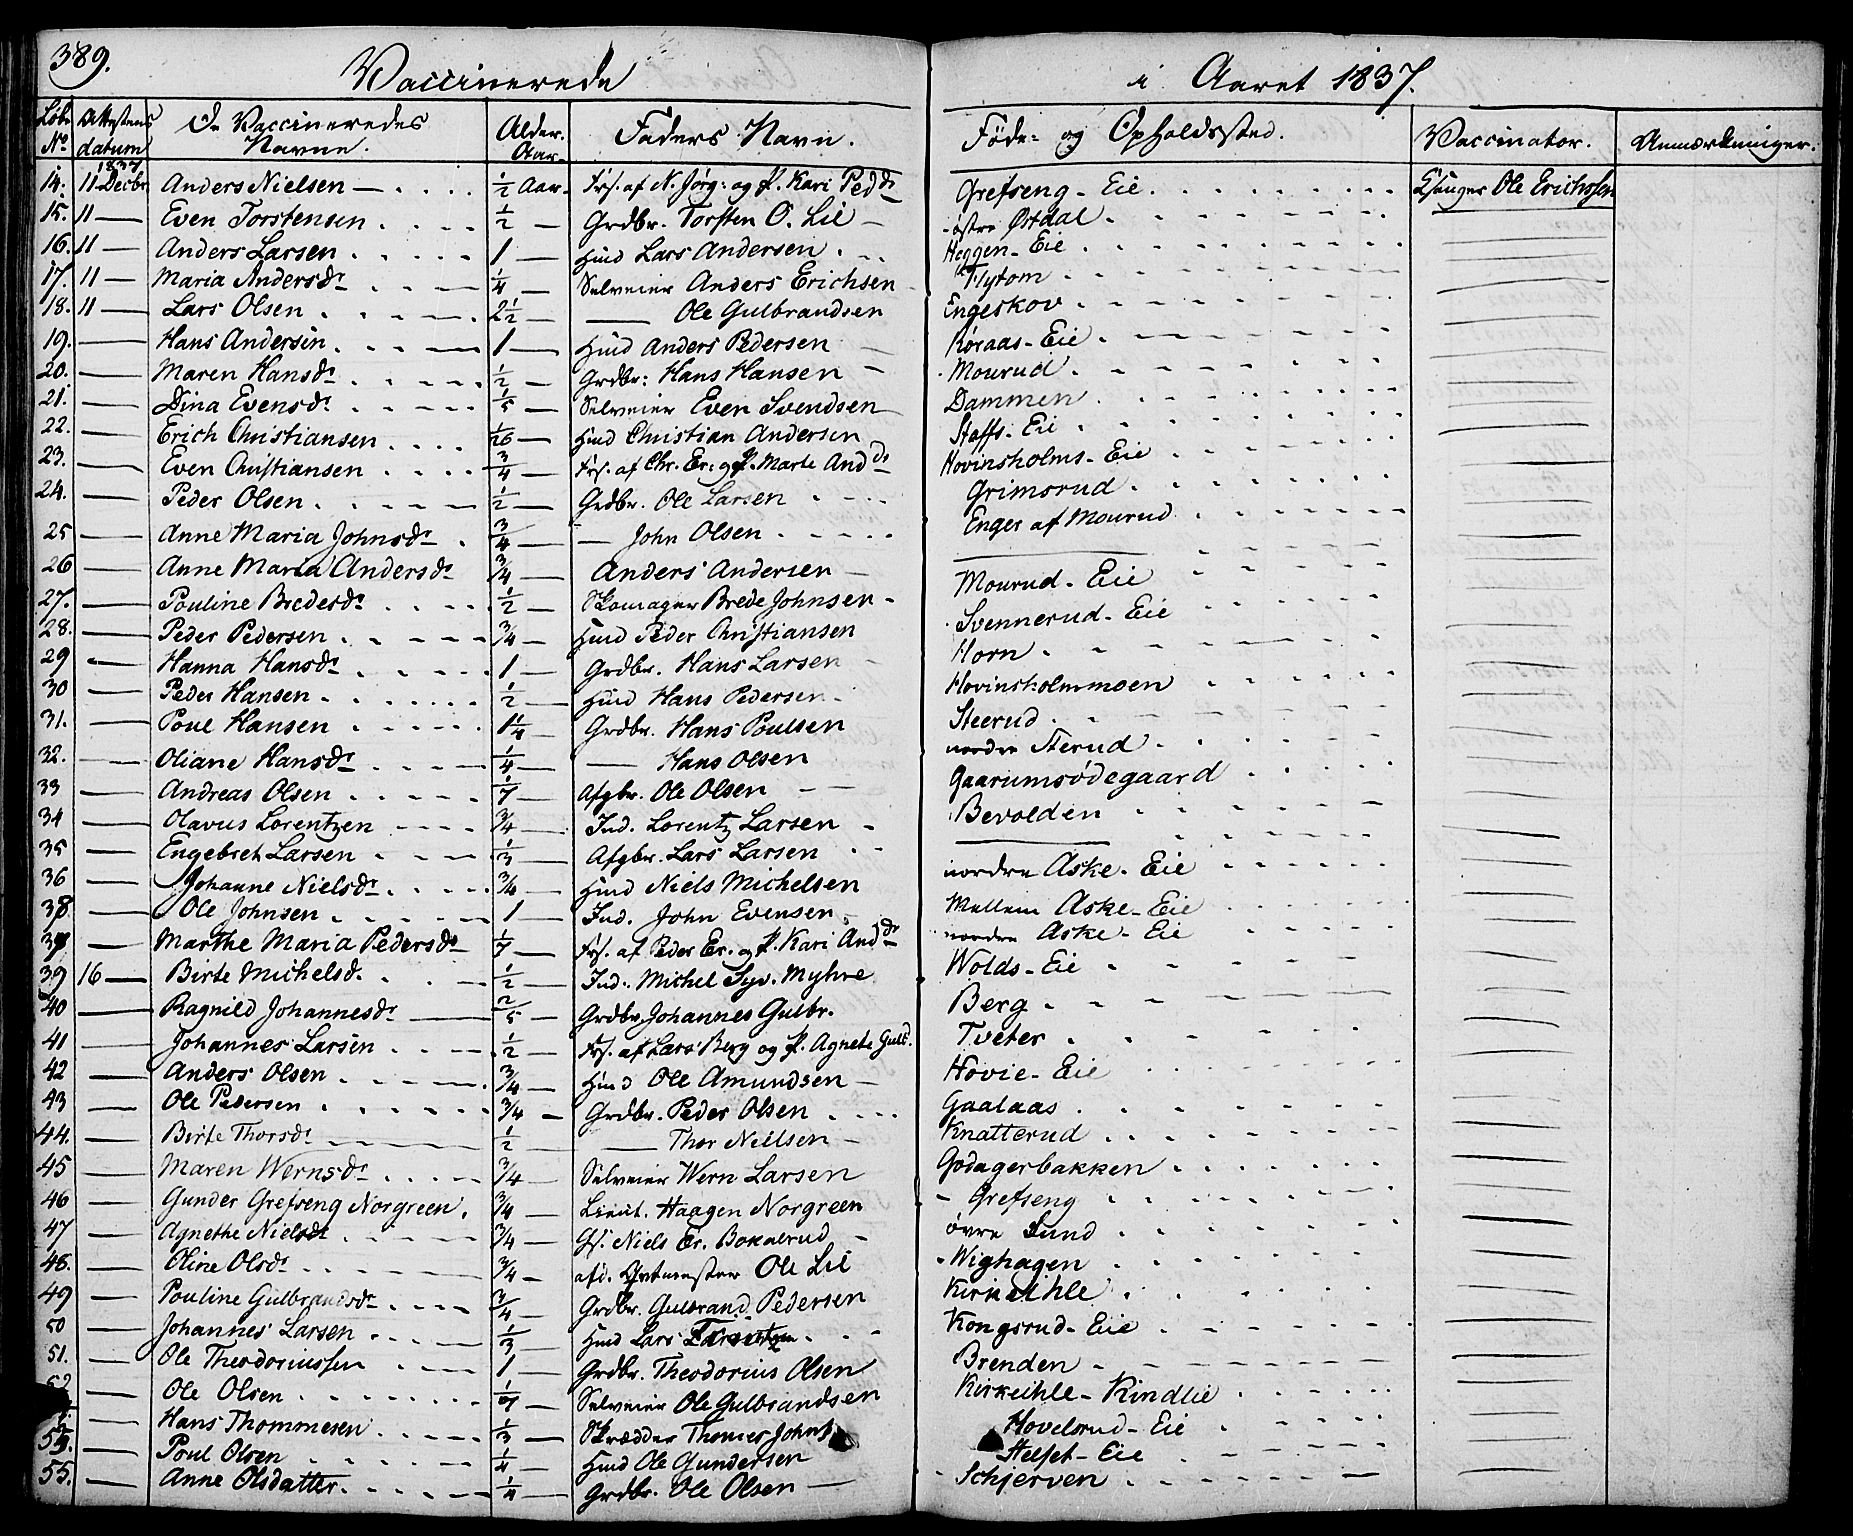 389.
Vaccinerede
i Aaret 1837.
Löbe No. Attestens datum De Vaccineredes Navne. Alder. Aar. Faders Navn. Föde- og Opholdssted. Vaccinator. Anmærkninger.
1837
14. 11 Decbr. Anders Nielsen 1/2 Aar Frs. af N. Jörg: og P. Kari Pedd. Grefseng-Eie. Ole Erichssen
15. 11 — Even Torstensen 1/2 — Grdbr. Torsten O. Lie östre Östdal
16. 11 — Anders Larsen 1 — Hmd Lars Andersen Heggen-Eie
17. 11 — Maria Andersdr. 1/4 — Selveier Anders Erichsen Flytom
18. 11 — Lars Olsen 2 1/2 — — Ole Gulbrandsen Engeskov
19. — Hans Andersen 1 — Hmd Anders Pedersen Köraas-Eie
20. — Maren Hansdr. 1/2 — Grdbr: Hans Hansen Mourud
21. — Dina Evensdr. 1/5 — Selveier Even Svendsen Dammen
22. — Erich Christiansen 1/26 — Hmd Christian Andersen Staffs-Eie
23. — Even Christiansen 3/4 — Frs. af Chr. Er: og P. Marte Andd. Hovinsholms-Eie
24. — Peder Olsen 1/2 — Grdbr. Ole Larsen Grimsrud
25 — Anne Maria Johnsdr. 3/4 — — John Olsen Enger af Mourud
26 — Anne Maria Andersdr. 3/4 — Anders Andersen —
27. — Pouline Bredesdr. 1/2 — Skomager Brede Johnsen Mourud-Eie
28. — Peder Pedersen 3/4 — Hmd Peder Christiansen Svennerud-Eie
29 — Hanna Hansdr. 1 — Grdbr. Hans Larsen Horn
30 — Peder Hansen 1/2 — Hmd Hans Pedersen Hovinsholmmoen
31. — Poul Hansen 1 1/4 — Grdbr. Hans Poulsen Steerud
32. — Oliane Hansdr. 1/4 — — Hans Olsen nordre Sterud
33 — Andreas Olsen 1/7 — Afgbr. Ole Olsen Gaarumsödegaard
34 — Olavus Lorentzen 3/4 — Ind. Lorentz Larsen Bevolden
35 — Engebret Larsen 1/3 — Afgbr. Lars Larsen —
36 — Johanne Nielsdr. 3/4 — Hmd Niels Michelsen nordre Aske-Eie
38. — Ole Johnsen 1 — Ind. John Evensen Mellem Aske-Eie
37 — Marthe Maria Pedersdr. 1/7 — Frs. af Peder Er. og P. Kari Andd. nordre Aske-Eie
39 16 — Birte Michelsd. 1/2 — Ind. Michel Syv. Myhre Wolds-Eie
40 — Ragnild Johannesdr. 2/5 — Grdbr. Johannes Gulbr. Berg
41 — Johannes Larsen 1/2 — Frs. af Lars Berg og P. Agnete Gulbd. Tveter
42 — Anders Olsen 3/4 — Hmd Ole Amundsen Hovie-Eie
43 — Ole Pedersen 3/4 — Grdbr. Peder Olsen Gaalaas
44. — Birte Thorsdr. 1/2 — — Thor Nielsen Knatterud
45 — Maren Wernsdr. 3/4 — Selveier Wern Larsen Godagerbakken
46 — Gunder Grefseng Norgreen. 3/4 — Lieut. Haagen Norgreen Grefseng
47 — Agnethe Nielsdr 3/4 — Gf. Niels Er. Bokalrud övre Lund
48. — Oline Olsdr. 3/4 — afd. Qvtmester Ole Lie Wighagen
49 — Pouline Gulbrandsdr. 3/4 — Grdbr. Gulbrand Pedersen Kirkeihle
50 — Johannes Larsen 1/3 — Hmd Lars Kongsrud-Eie
51. — Ole Theodoriussen 1 — Grdbr. Theodorius Olsen Brenden
52 — Ole Olsen Selveier Ole Gulbrandsen Kirkeihle-Rindlie
— Hans Thommesen 1/3 — Skrædder Thomes Johns Hovelsrud-Eie
— Poul Olsen 1/4 — Hmd Ole Gundersen Helset-Eie
55. — Anne Olsdatter 1/4 — Grdbr. Ole Olsen Schjerven